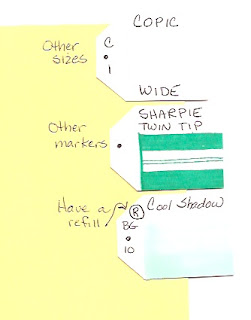 COPIC
Other
sizes
C
1
WIDE
SHARPIE
TWIN TIP
Other
markers
Have a
refill
R
Cool Shadow
BG
10